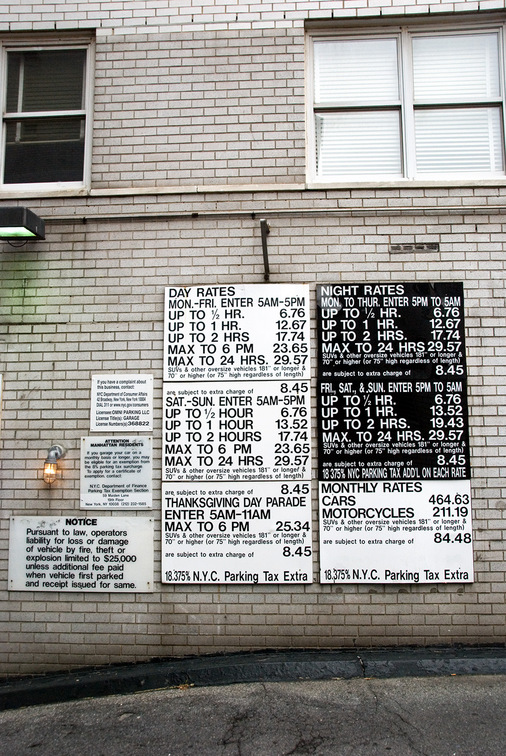 DAY RATES
MON.-FRI. ENTER 5AM-5PM
UP TO ½ HR. 6.76
UP TO 1 HR. 12.67
UP TO 2 HRS 17.74
MAX TO 6 PM 23.65
MAX TO 24 HRS. 29.57
SUVs & other oversize vehicles 181" or longer &
70" or higher (or 75" high regardless of length)
are subject to extra charge of 8.45
SAT.-SUN. ENTER 5AM-5PM
UP TO ½ HOUR 6.76
UP TO 1 HOUR 13.52
UP TO 2 HOURS 17.74
MAX TO 6 PM 23.65
MAX TO 24 HRS 29.57
SUVs & other oversize vehicles 181" or longer &
70" or higher (or 75" high regardless of length)
are subject to extra charge of 8.45
THANKSGIVING DAY PARADE
ENTER 5AM-11AM
MAX TO 6 PM 25.34
SUVs & other oversize vehicles 181" or longer &
70" or higher (or 75" high regardless of length)
are subject to extra charge of 8.45
18.375% N.Y.C. Parking Tax Extra
NIGHT RATES
MON. TO THUR. ENTER 5PM TO 5AM
UP TO ½ HR. 6.76
UP TO 1 HR. 12.67
UP TO 2 HRS. 17.74
MAX TO 24 HRS 29.57
SUVs & other oversize vehicles 181" or longer &
70" or higher (or 75" high regardless of length)
are subject to extra charge of 8.45
FRI., SAT., & SUN. ENTER 5PM TO 5AM
UP TO ½ HR. 6.76
UP TO 1 HR. 13.52
UP TO 2 HRS. 19.43
MAX TO 24 HRS. 29.57
SUVs & other oversize vehicles 181" or longer &
70" or higher (or 75" high regardless of length)
are subject to extra charge of 8.45
18.375% NYC PARKING TAX ADD'L ON EACH RATE
MONTHLY RATES
CARS 464.63
MOTORCYCLES 211.19
SUVs & other oversize vehicles 181" or longer &
70" or higher (or 75" high regardless of length)
are subject to extra charge of 84.48
18.375% N.Y.C. Parking Tax Extra
If you have a complaint about
this business, contact:
NYC Department of Consumer Affairs
42 Broadway, New York, New York 10004
DIAL 311 or www.nyc.gov/consumers
Licensee: OMNI PARKING LLC
License Title(s): GARAGE
License Number(s): 1368822
ATTENTION
MANHATTAN RESIDENTS
If you garage your car on a
monthly basis or longer, you may
be eligible for an exemption from
the 8% parking tax surcharge.
To apply for a certificate of
exemption contact:
N.Y.C. Department of Finance
Parking Tax Exemption Section
59 Maiden Lane
New York, NY 10038
NOTICE
Pursuant to law, operators
liability for loss or damage
of vehicle by fire, theft or
explosion limited to $25,000
unless additional fee paid
when vehicle first parked
and receipt issued for same.